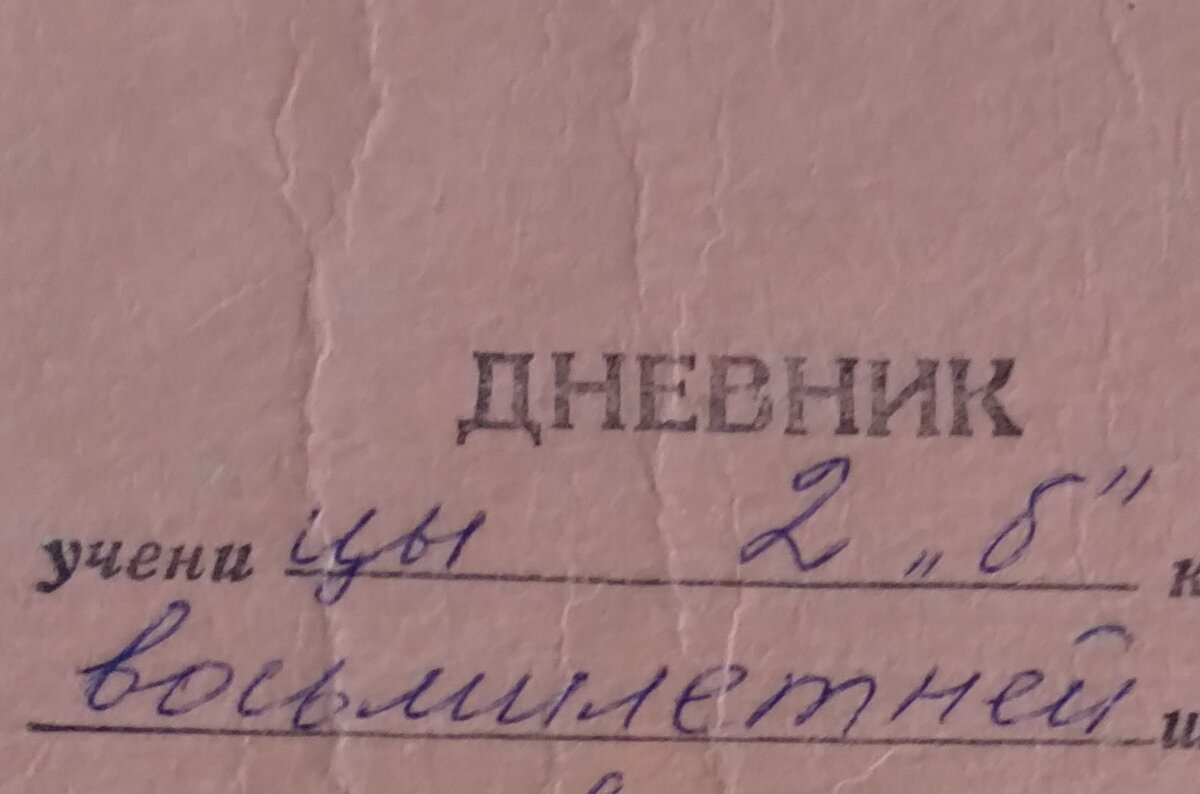 ДНЕВНИК
ученицы 2 „б"
восьмилетней